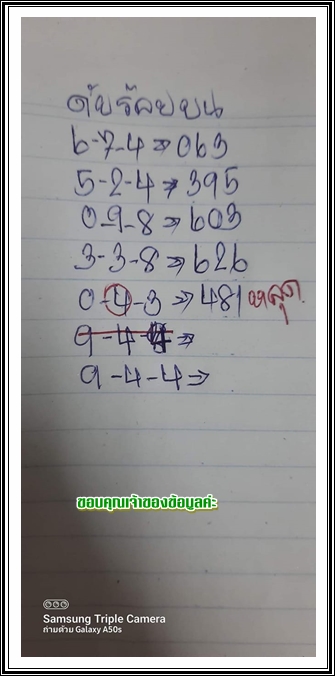 ดับร้อยบน
6-7-4⇒063
5-2-4⇒395
0-9-8⇒603
3-3-8⇒626
0-4-3⇒481 หลุด
9-4-4⇒
9-4-4⇒
ขอบคุณเจ้าของข้อมูลค่ะ
Samsung Triple Camera
ถ่ายด้วย Galaxy A50s